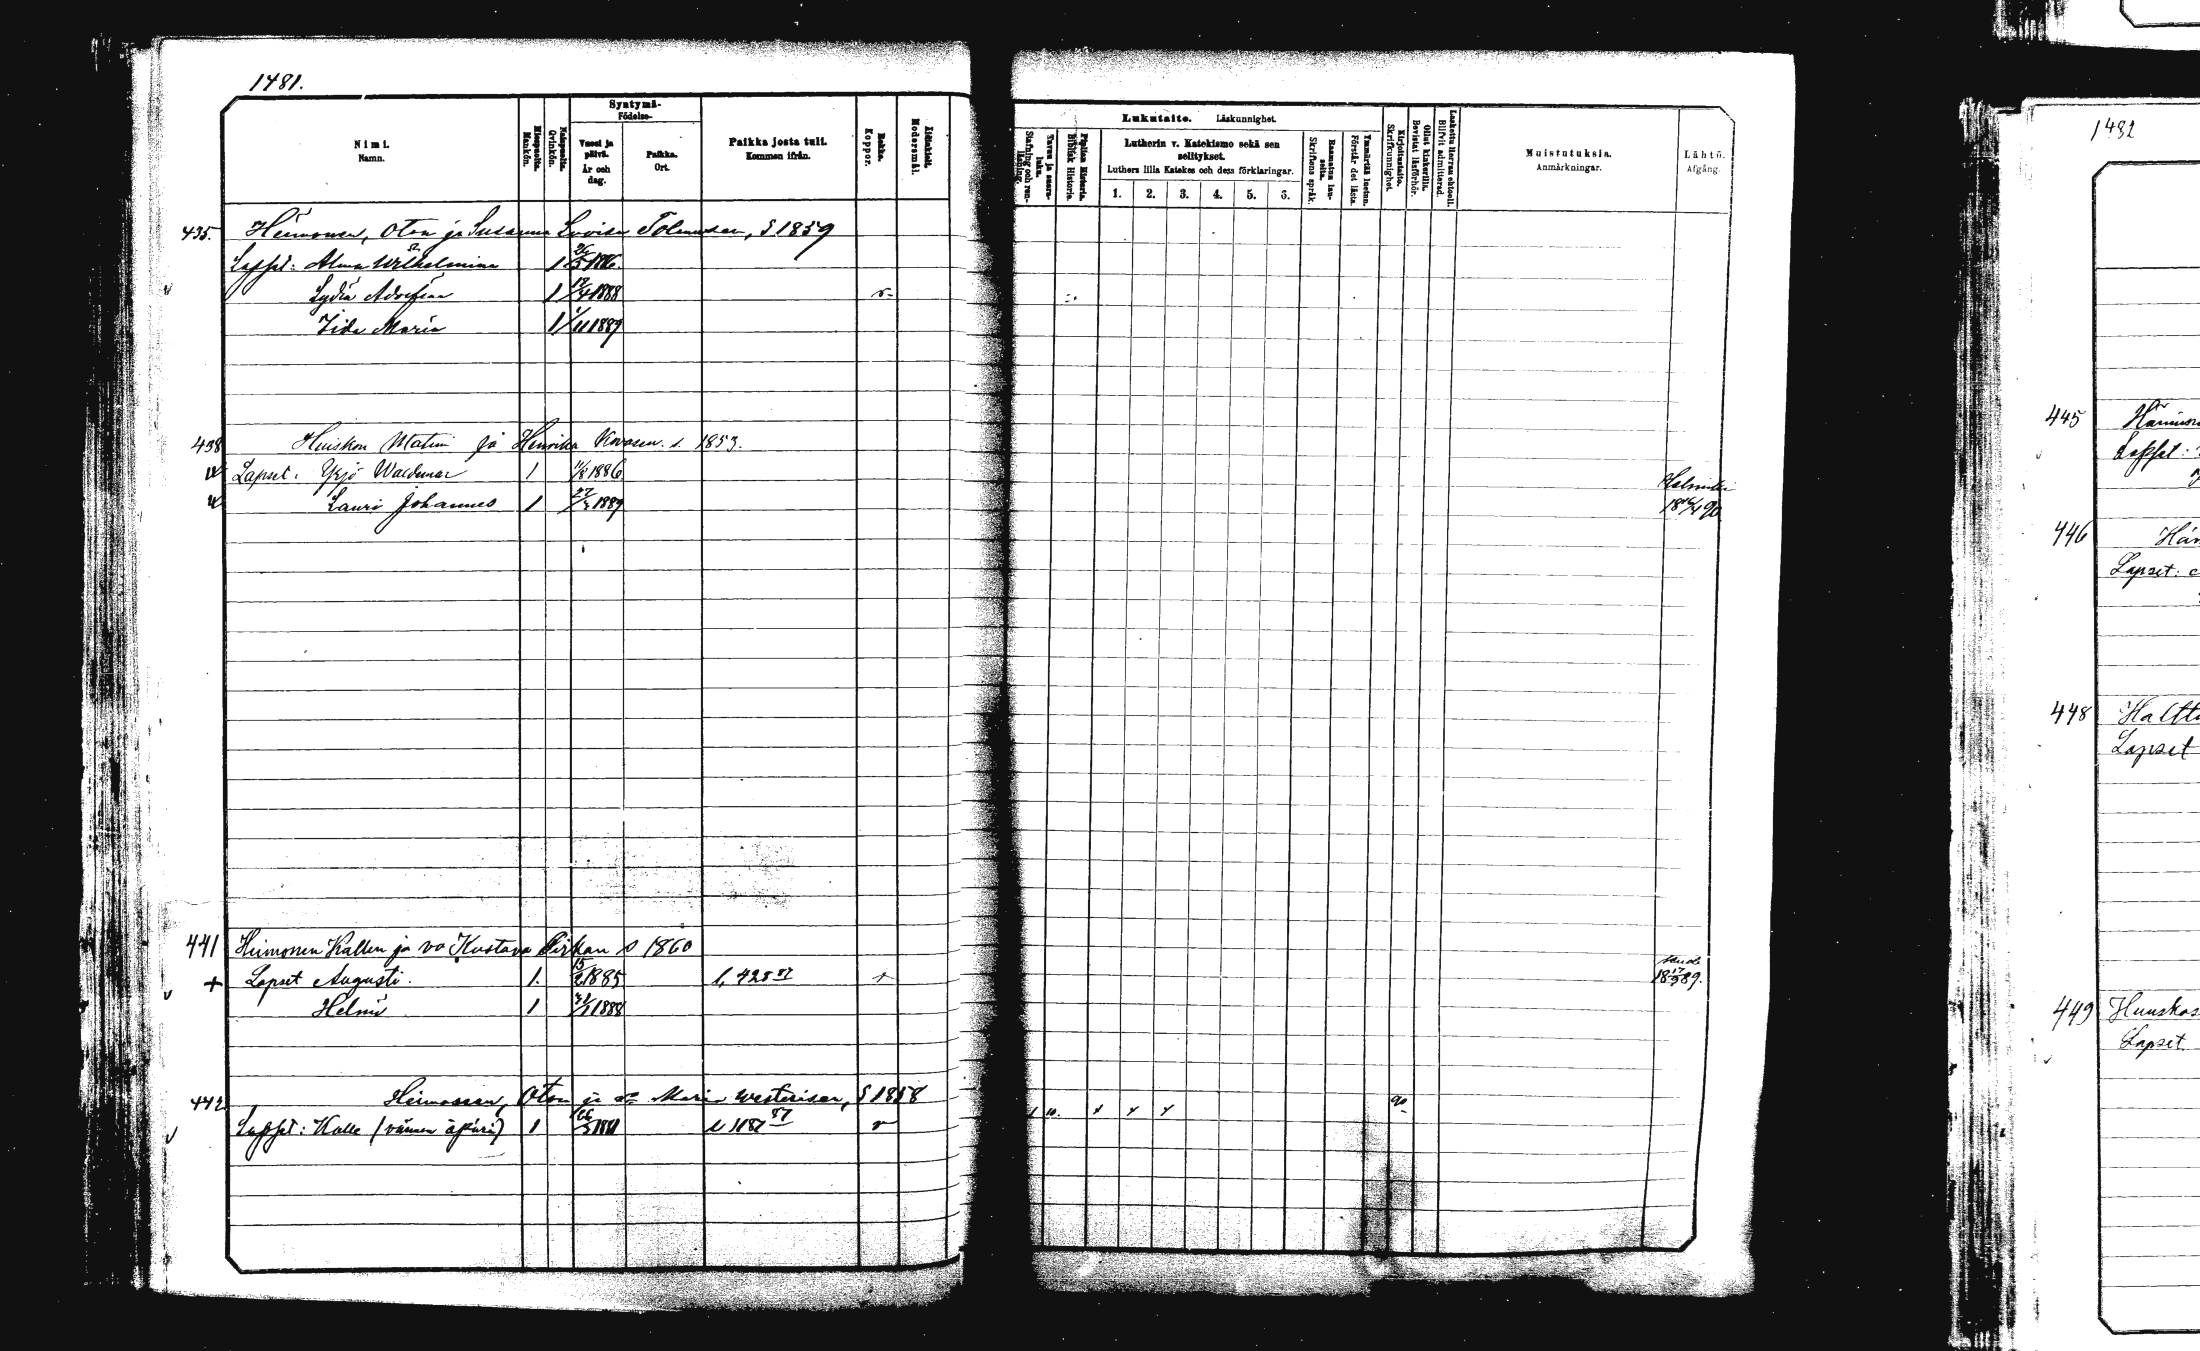 1481.
Nimi.
Namn.
Miespuolia.
Mankön.
Naispuolia.
Qvinkön.
Syntymä-
Födelse-
Vuosi ja
päivä.
År och
dag.
Paikka.
Ort.
Paikka josta tuli.
Kommen ifrån.
Rokko.
Koppor.
Äidinkieli.
Modersmål.
435. Heimonen, Oton ja Susanna Lovisa Tolmusen, S 1859
Lapset: Alma Wilhelmina 1 26/5 1886.
Lydia Adolfina 1 12/4 1888
Iida Maria 1 1/11 1889
438 Huiskon Matin ja Henrika Kovasen s. 1853.
Lapset: Yrjö Waldemar 1 1/8 1886
Lauri Johannes 1 27/3 1889
441 Heimonen Kallen ja vo Kustava Pirkan s 1860
+ Lapset Augusti. 1. 15/2 1885 l, 425 87
Helmi 1 1888
442 Heimonen, Oton ja vo Maria S 1858
Lapset: Kalle 1 1881 l 1181 87
Lukutaito. Läskunnighet.
Tavaa ja suora-
luku.
Stafning och ren-
läsning.
Piplian Historia.
Biblisk Historia.
Lutherin v. Katekismo sekä sen
selitykset.
Luthers lilla Katekes och dess förklaringar.
1. 2. 3. 4. 5. 6.
Raamatun lau-
seita.
Skriftens språk.
Ymmärtää luetun.
Förstår det lästa.
Kirjoitustaito.
Skrifkunnighet.
Ollut kinkerillä.
Bevistat läsförhör.
Laskettu Herran ehtool.
Blifvit admitterad.
Muistutuksia.
Anmärkningar.
Lähtö.
Afgång.
Helsinki
90
1482
445
Lapset:
446
Lapset:
448
Lapset
449
Lapset.